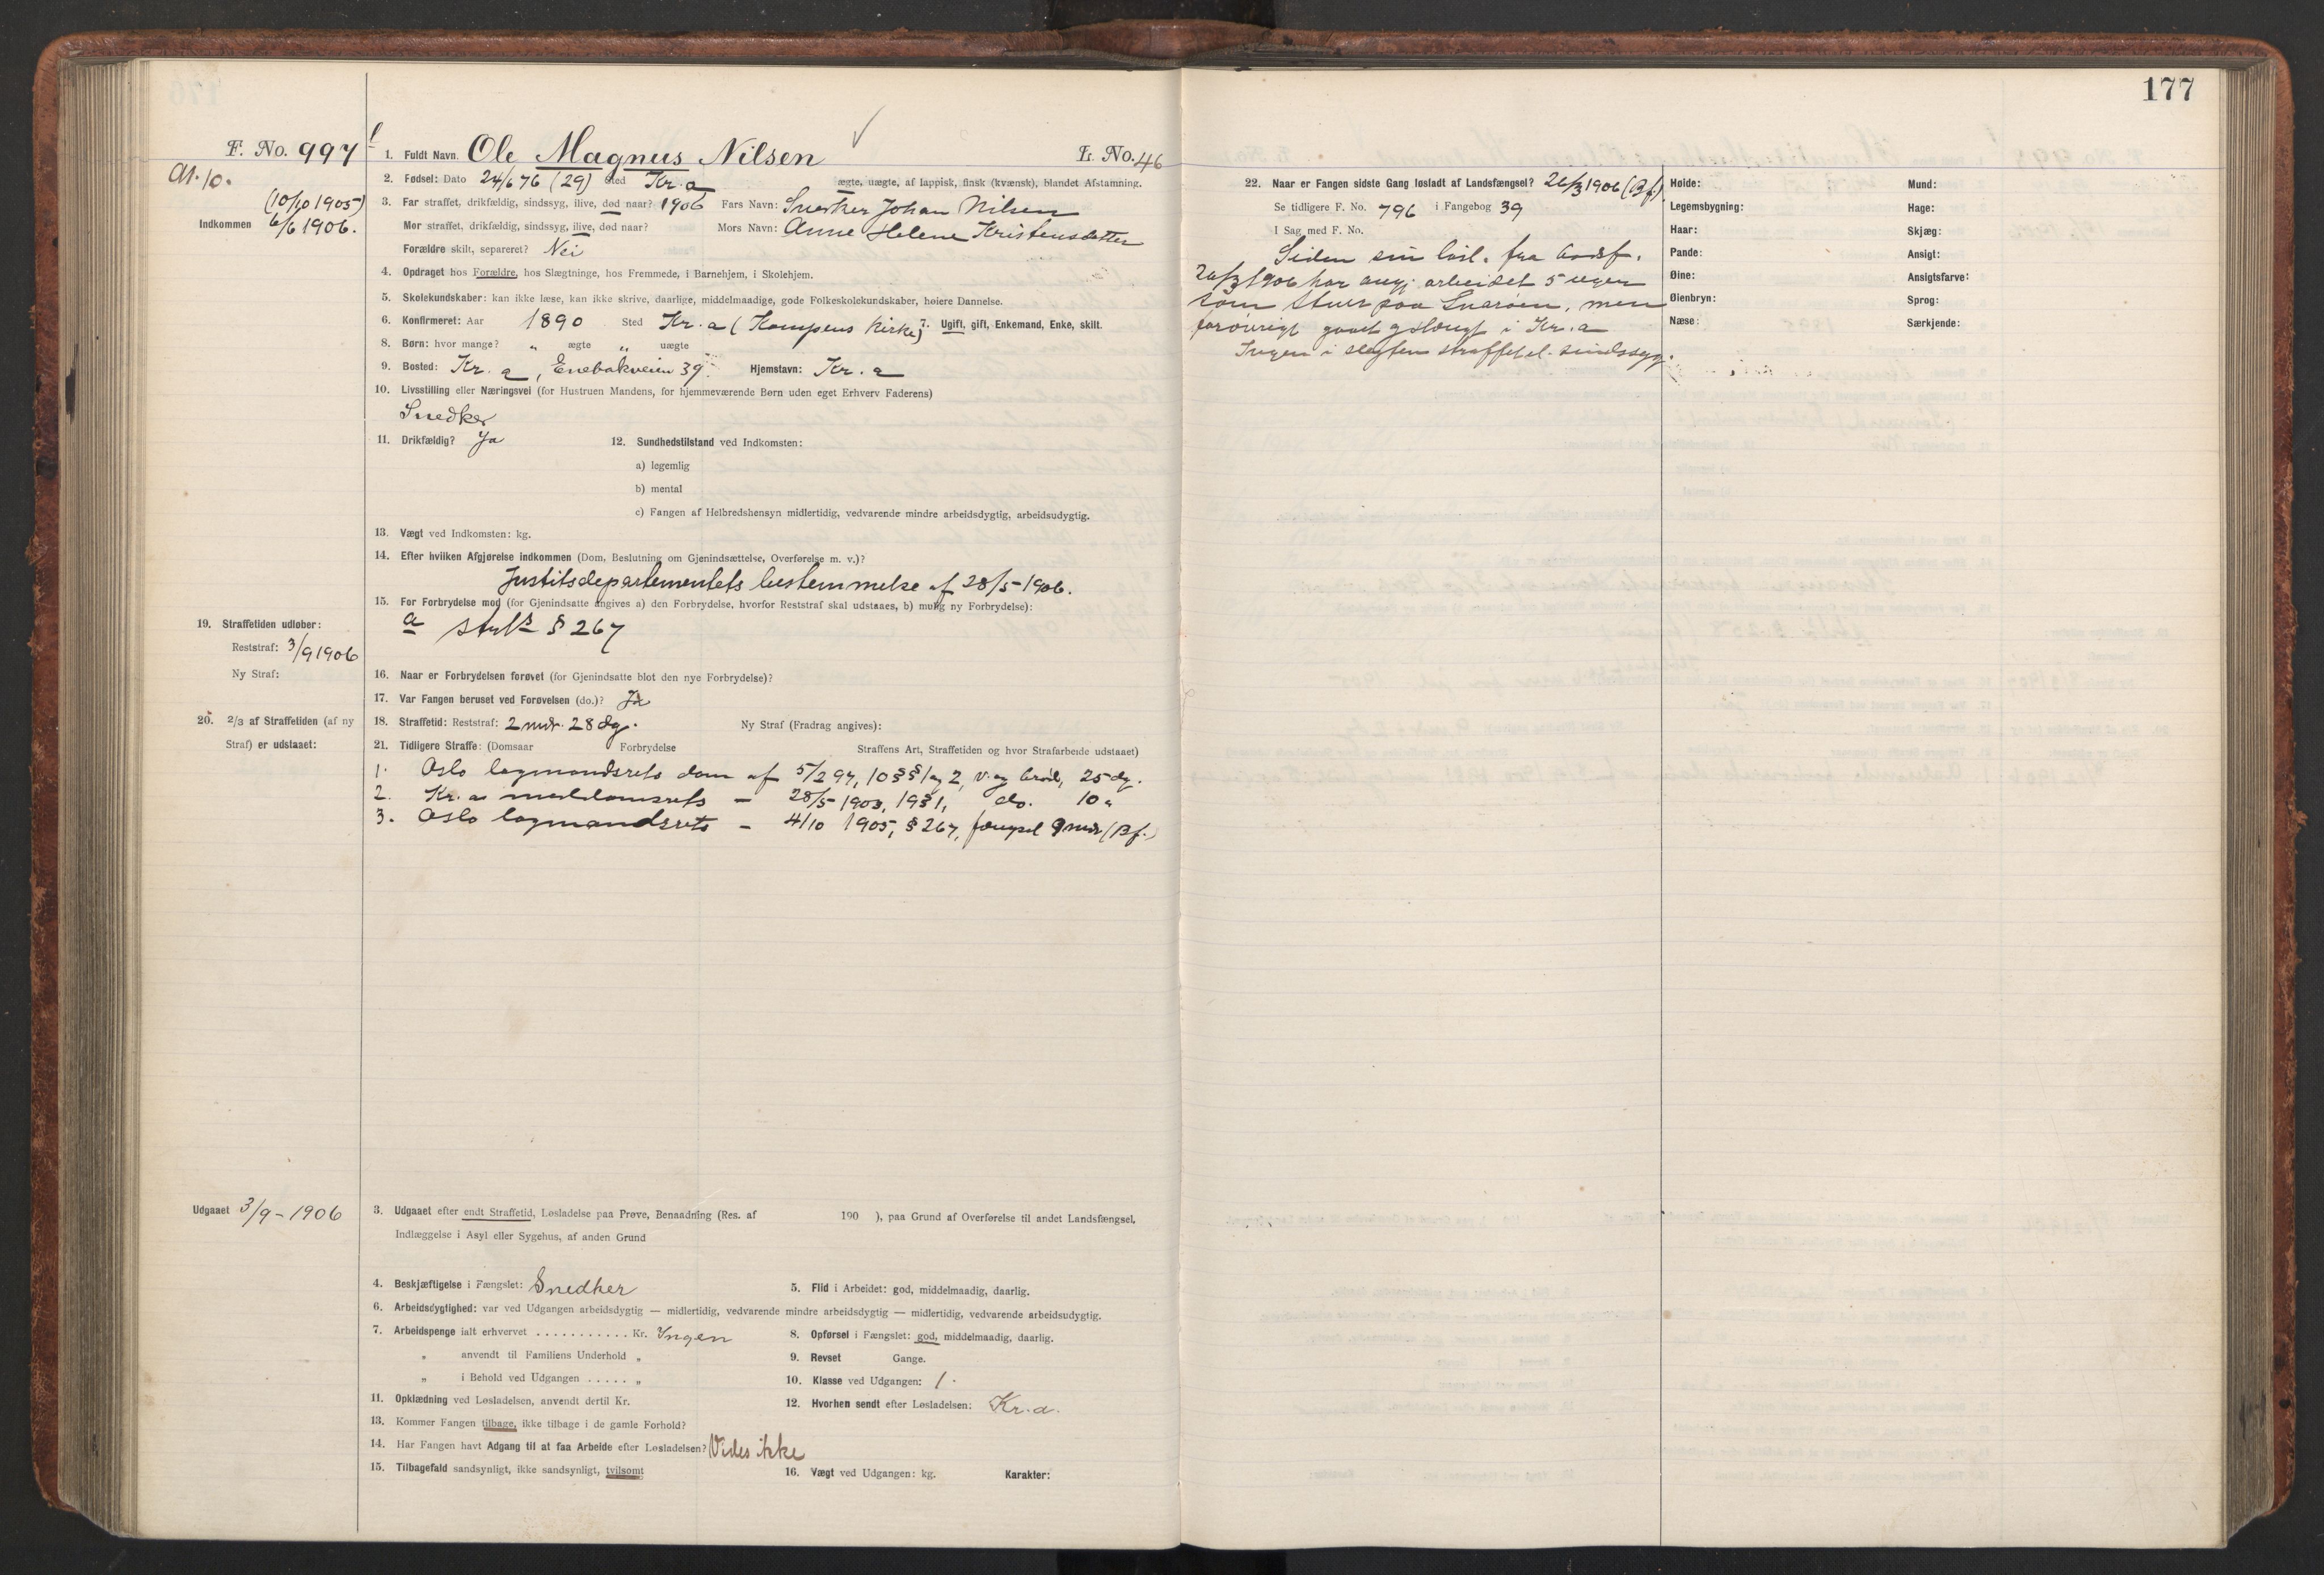 177
F. No. 997
Af. 10.
(10/10 1905)
Indkommen 6/6 1906.
1. Fuldt Navn. Ole Magnus Nilsen L. No. 46
2. Fødsel: Dato 24/6 76 (29) Sted Kr.a ægte, uægte, af lappisk, finsk (kvænsk), blandet Afstamning.
3. Far straffet, drikfældig, sindssyg, ilive, død naar? 1906 Fars Navn: Snedker Johan Nilsen
Mor straffet, drikfældig, sindssyg, ilive, død naar? Mors Navn: Anne Helene Kristensdatter
Forældre skilt, separeret? Nei
4. Opdraget hos Forældre, hos Slægtninge, hos Fremmede, i Barnehjem, i Skolehjem.
5. Skolekundskaber: kan ikke læse, kan ikke skrive, daarlige, middelmaadige, gode Folkeskolekundskaber, høiere Dannelse.
6. Konfirmeret: Aar 1890 Sted Kr.a (Kampens Kirke) 7. Ugift, gift, Enkemand, Enke, skilt.
8. Børn: hvor mange? „ ægte „ uægte
9. Bosted: Kr.a, Enebakveien 39. Hjemstavn: Kr.a
10. Livsstilling eller Næringsvei (for Hustruen Mandens, for hjemmeværende Børn uden eget Erhverv Faderens)
Snedker
11. Drikfældig? Ja 12. Sundhedstilstand ved Indkomsten:
a) legemlig
b) mental
c) Fangen af Helbredshensyn midlertidig, vedvarende mindre arbeidsdygtig, arbeidsudygtig.
13. Vægt ved Indkomsten: kg.
14. Efter hvilken Afgjørelse indkommen (Dom, Beslutning om Gjenindsættelse, Overførelse m. v.)?
Justitsdepartementets bestemmelse af 28/5-1906.
15. For Forbrydelse mod (for Gjenindsatte angives a) den Forbrydelse, hvorfor Reststraf skal udstaaes, b) mulig ny Forbrydelse):
a § 267
19. Straffetiden udløber:
Reststraf: 3/9 1906
Ny Straf:
16. Naar er Forbrydelsen forøvet (for Gjenindsatte blot den nye Forbrydelse)?
17. Var Fangen beruset ved Forøvelsen (do.)? Ja
20. 2/3 af Straffetiden (af ny
Straf) er udstaaet:
18. Straffetid: Reststraf: 2 mdr. 28 dg. Ny Straf (Fradrag angives):
21. Tidligere Straffe: (Domsaar Forbrydelse Straffens Art, Straffetiden og hvor Strafarbeide udstaaet)
1. Oslo lagmandsrets dom af 5/2 97, 10 §§ 1 og 2, v. og brød, 25 dg.
2. Kr.a meddomsrets – 28/5-1903, 19 § 1, do. 10 „
3. Oslo lagmandsrets – 4/10 1905, § 267, fængsel 9 mdr (Bf.)
Udgaaet 3/9-1906
3. Udgaaet efter endt Straffetid, Løsladelse paa Prøve, Benaadning (Res. af 190 ), paa Grund af Overførelse til andet Landsfængsel,
Indlæggelse i Asyl eller Sygehus, af anden Grund
4. Beskjæftigelse i Fængslet: Snedker 5. Flid i Arbeidet: god, middelmaadig, daarlig.
6. Arbeidsdygtighed: var ved Udgangen arbeidsdygtig — midlertidig, vedvarende mindre arbeidsdygtig — midlertidig, vedvarende arbeidsudygtig.
7. Arbeidspenge ialt erhvervet ........... Kr. Yngen 8. Opførsel i Fængslet: god, middelmaadig, daarlig.
„ anvendt til Familiens Underhold „ 9. Revset Gange.
„ i Behold ved Udgangen ..... „ 10. Klasse ved Udgangen: 1.
11. Opklædning ved Løsladelsen, anvendt dertil Kr. 12. Hvorhen sendt efter Løsladelsen: Kr.a.
13. Kommer Fangen tilbage, ikke tilbage i de gamle Forhold?
14. Har Fangen havt Adgang til at faa Arbeide efter Løsladelsen? Vides ikke
15. Tilbagefald sandsynligt, ikke sandsynligt, tvilsomt 16. Vægt ved Udgangen: kg. Karakter:
22. Naar er Fangen sidste Gang løsladt af Landsfængsel? 26/3 1906 (Bf.)
Se tidligere F. No. 796 i Fangebog 39
I Sag med F. No.
Siden sin løsl. fra Bodsf.
26/3 1906 har angj. arbeidet 5 uger
som paa Snarøen, men
forøvrigt gaaet i Kr.a
Ingen i slegten straffet el. sindssyg.
Høide:
Legemsbygning:
Haar:
Pande:
Øine:
Øienbryn:
Næse:
Mund:
Hage:
Skjæg:
Ansigt:
Ansigtsfarve:
Sprog:
Særkjende: